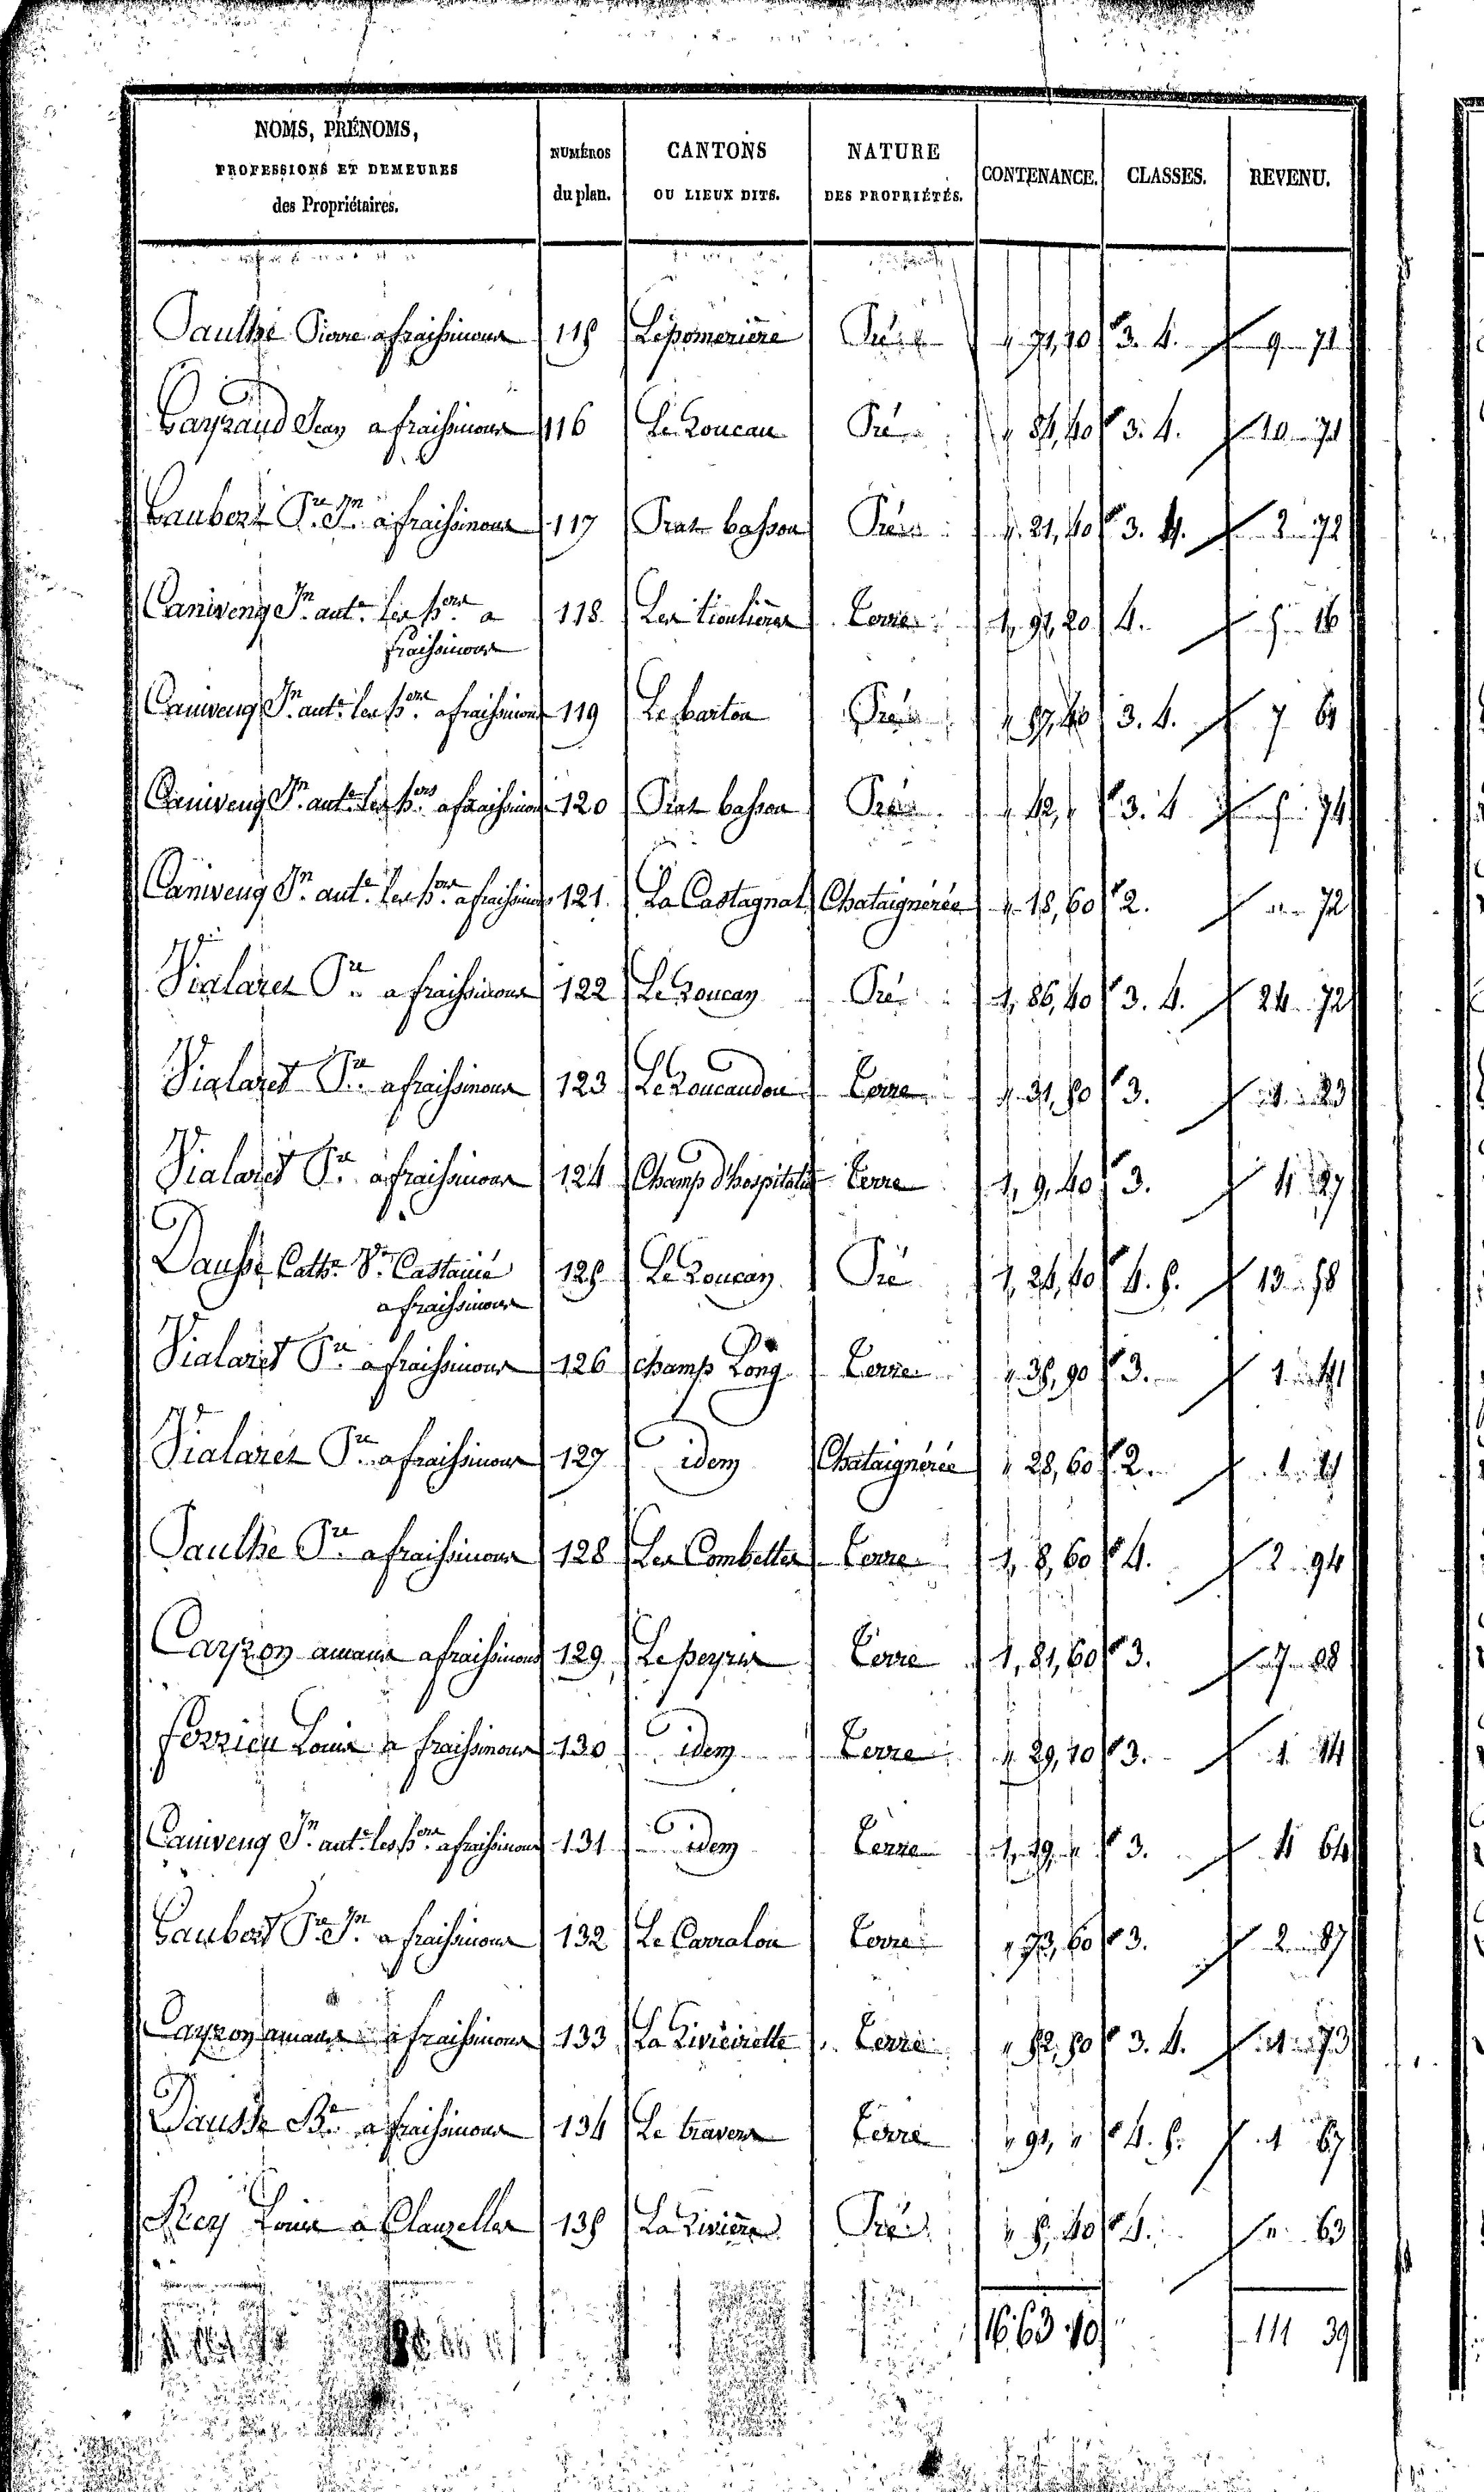 NOMS, PRÉNOMS,
PROFESSIONS ET DEMEURES
des Propriétaires.
NUMÉROS
du plan.
CANTONS
OU LIEUX DITS.
NATURE
DES PROPRIÉTÉS.
CONTENANCE.
CLASSES.
REVENU.
Paulhe Pierre a fraissinous 115 Pré 3. 4. 9 71
Jean a fraissinous 116 Le Roucau Pré 3. 4. 10 71
Gaubert Pre Jn a fraissinous 117 Prat basson Pré " 21, 40 3. 4. 2 72
Caniveng Jn ante les hers a 118 Terre 4. 5 16
fraissinous
Caniveng Jn ante les hers a fraissinous 119 Pré 3. 4. 7
Caniveng Jn ante les hers a fraissinous 120 Prat basson Pré " 42, " 3. 4 5 74
Caniveng Jn ante les hers a fraissinous 121 La Castagnal Chataignérée " 18, 60 2. " 72
Vialaret Pre a fraissinous 122 Le Roucan Pré 1, 86, 40 3. 4. 24 72
Vialaret Pre a fraissinous 123 Terre " 31, 50 3. 1 23
Vialaret Pre a fraissinous 124 Champ d'hospitalié Terre 1, 9, 40 3. 4 27
Dausse Cathe Ve Castanié 125 Le Roucan Pré 4. 5. 13 58
a fraissinous
Vialaret Pre a fraissinous 126 champ Long Terre " 35, 90 3. 1 41
Vialaret Pre a fraissinous 127 idem Chataignérée " 28, 60 2. 1
Paulhe Pre a fraissinous 128 Les Combettes Terre 1, 8, 60 4. 2 94
Cayron amans a fraissinous 129 Le peyrus Terre 1, 81, 60 3. 7 08
Ferrieu Louis a fraissinous 130 idem Terre " 29, 10 3. 1 14
Caniveng Jn ante les hers a fraissinous 131 idem Terre 1, 19, " 3. 4 64
Gaubert Pre Jn a fraissinous 132 Le Carralou Terre " 73, 60 3. 2 87
Cayron amans a fraissinous 133 La Rivieirette Terre " 52, 50 3. 4. 1 73
Dausse a fraissinous 134 Le travers Terre " 91, " 4. 5. 1 67
Rey Louis a Clauzelles 135 La Rivière Pré " 5, 40 4. " 63
16 63 10 111 39